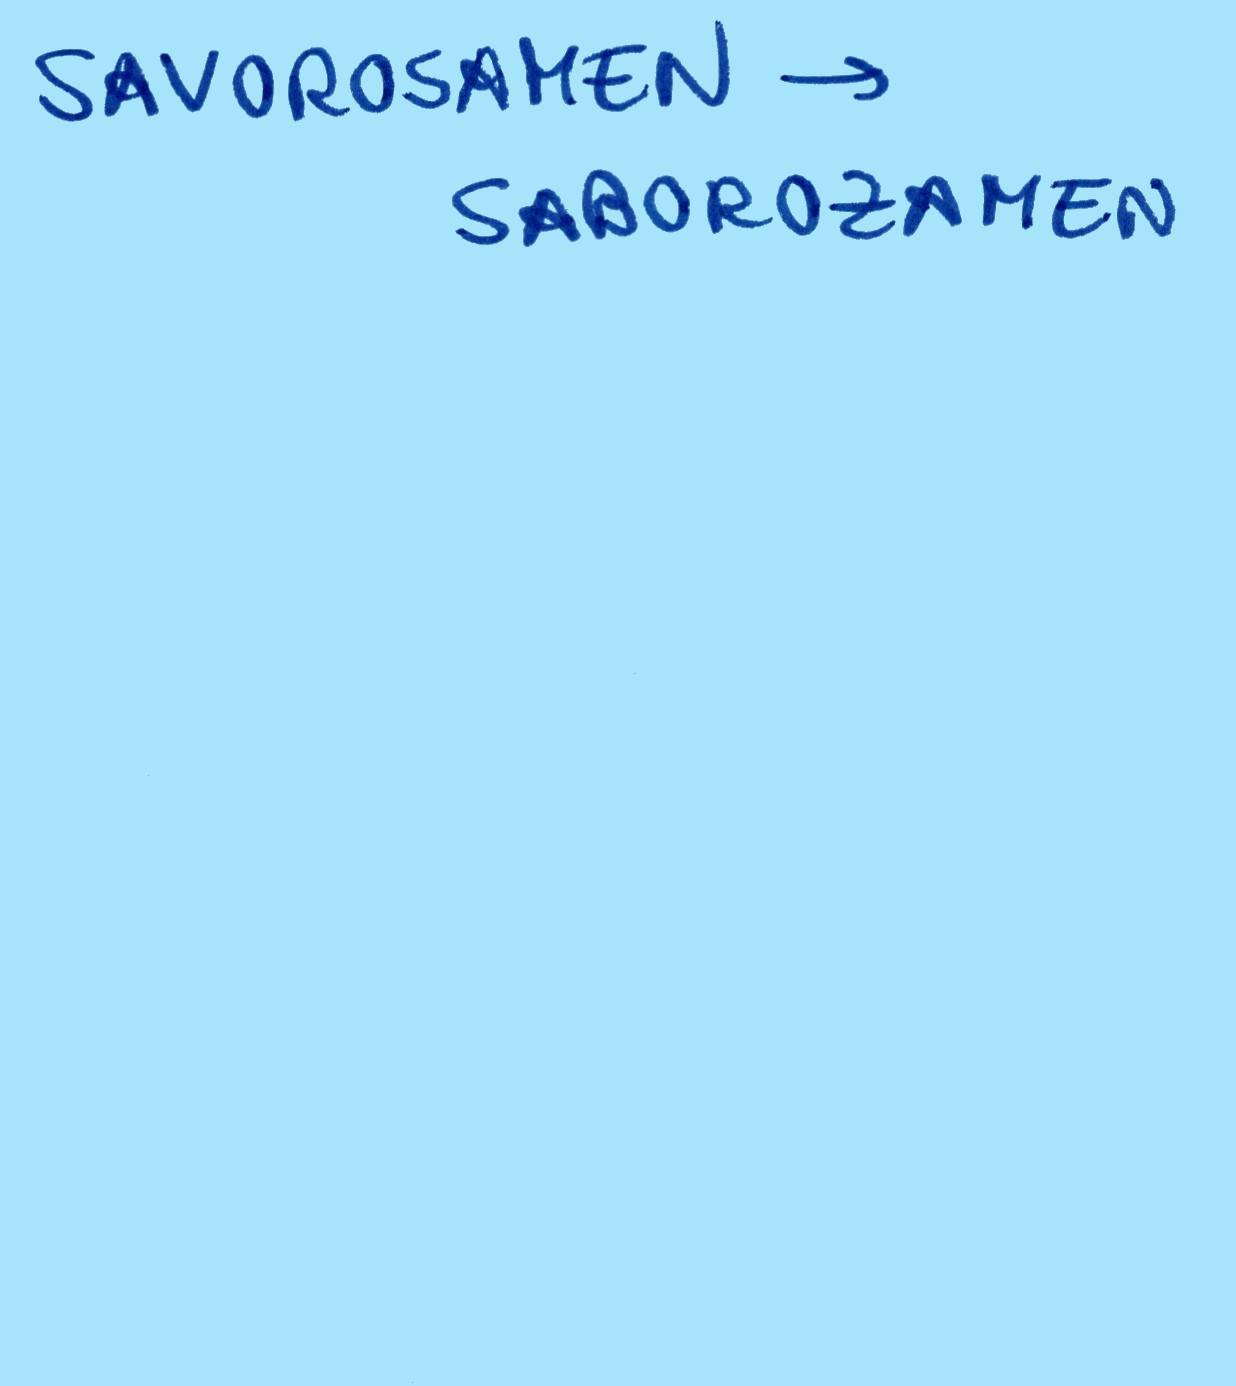 SAVOROSAMEN →
SABOROZAMEN